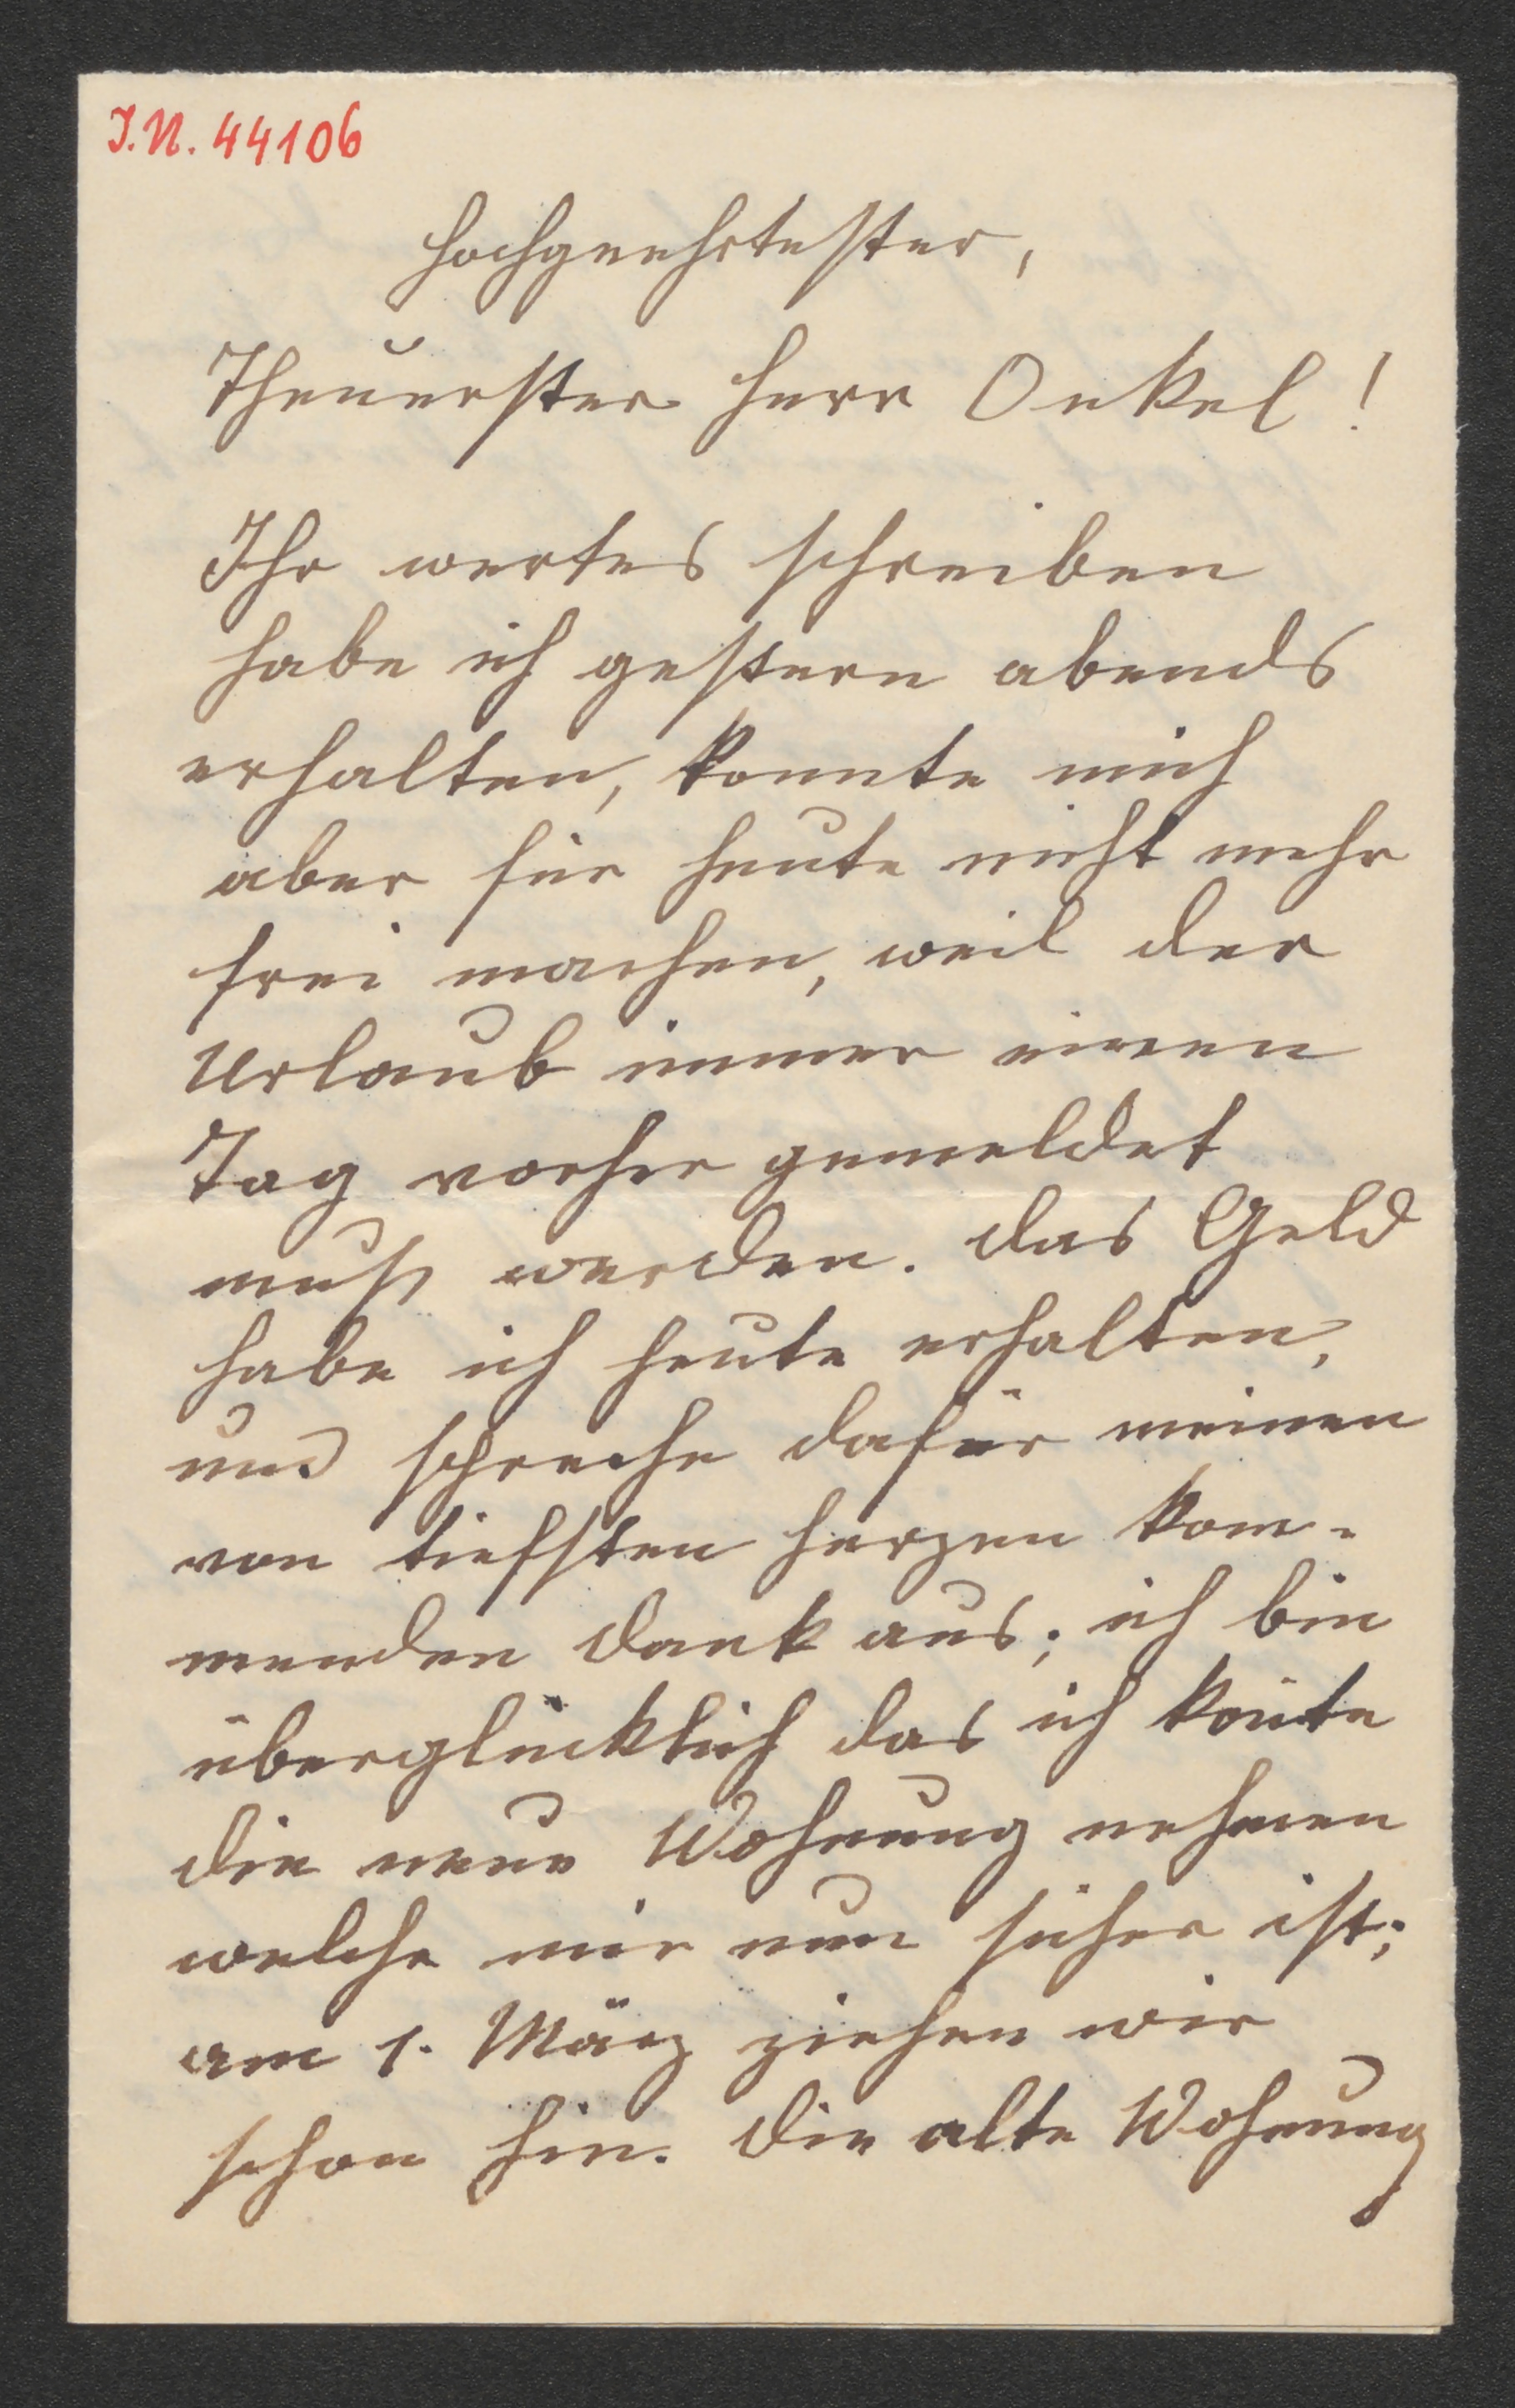 I.N. 44106
Hochgeehrtester,
Theuerster Herr Onkel!
Ihr wertes schreiben
habe ich gestern abends
erhalten, konnte mich
aber für heute nicht mehr
frei machen, weil der
Urlaub immer einen
Tag vorher gemeldet
muß werden. das Geld
habe ich heute erhalten,
und spreche dafür meinen
von tiefsten herzen kom-
menden dank aus; ich bin
überglücklich das ich konte
die neue Wohnung nehmen
welche mir nun sicher ist;
am 1. März ziehen wir
schon hin. die alte Wohnung